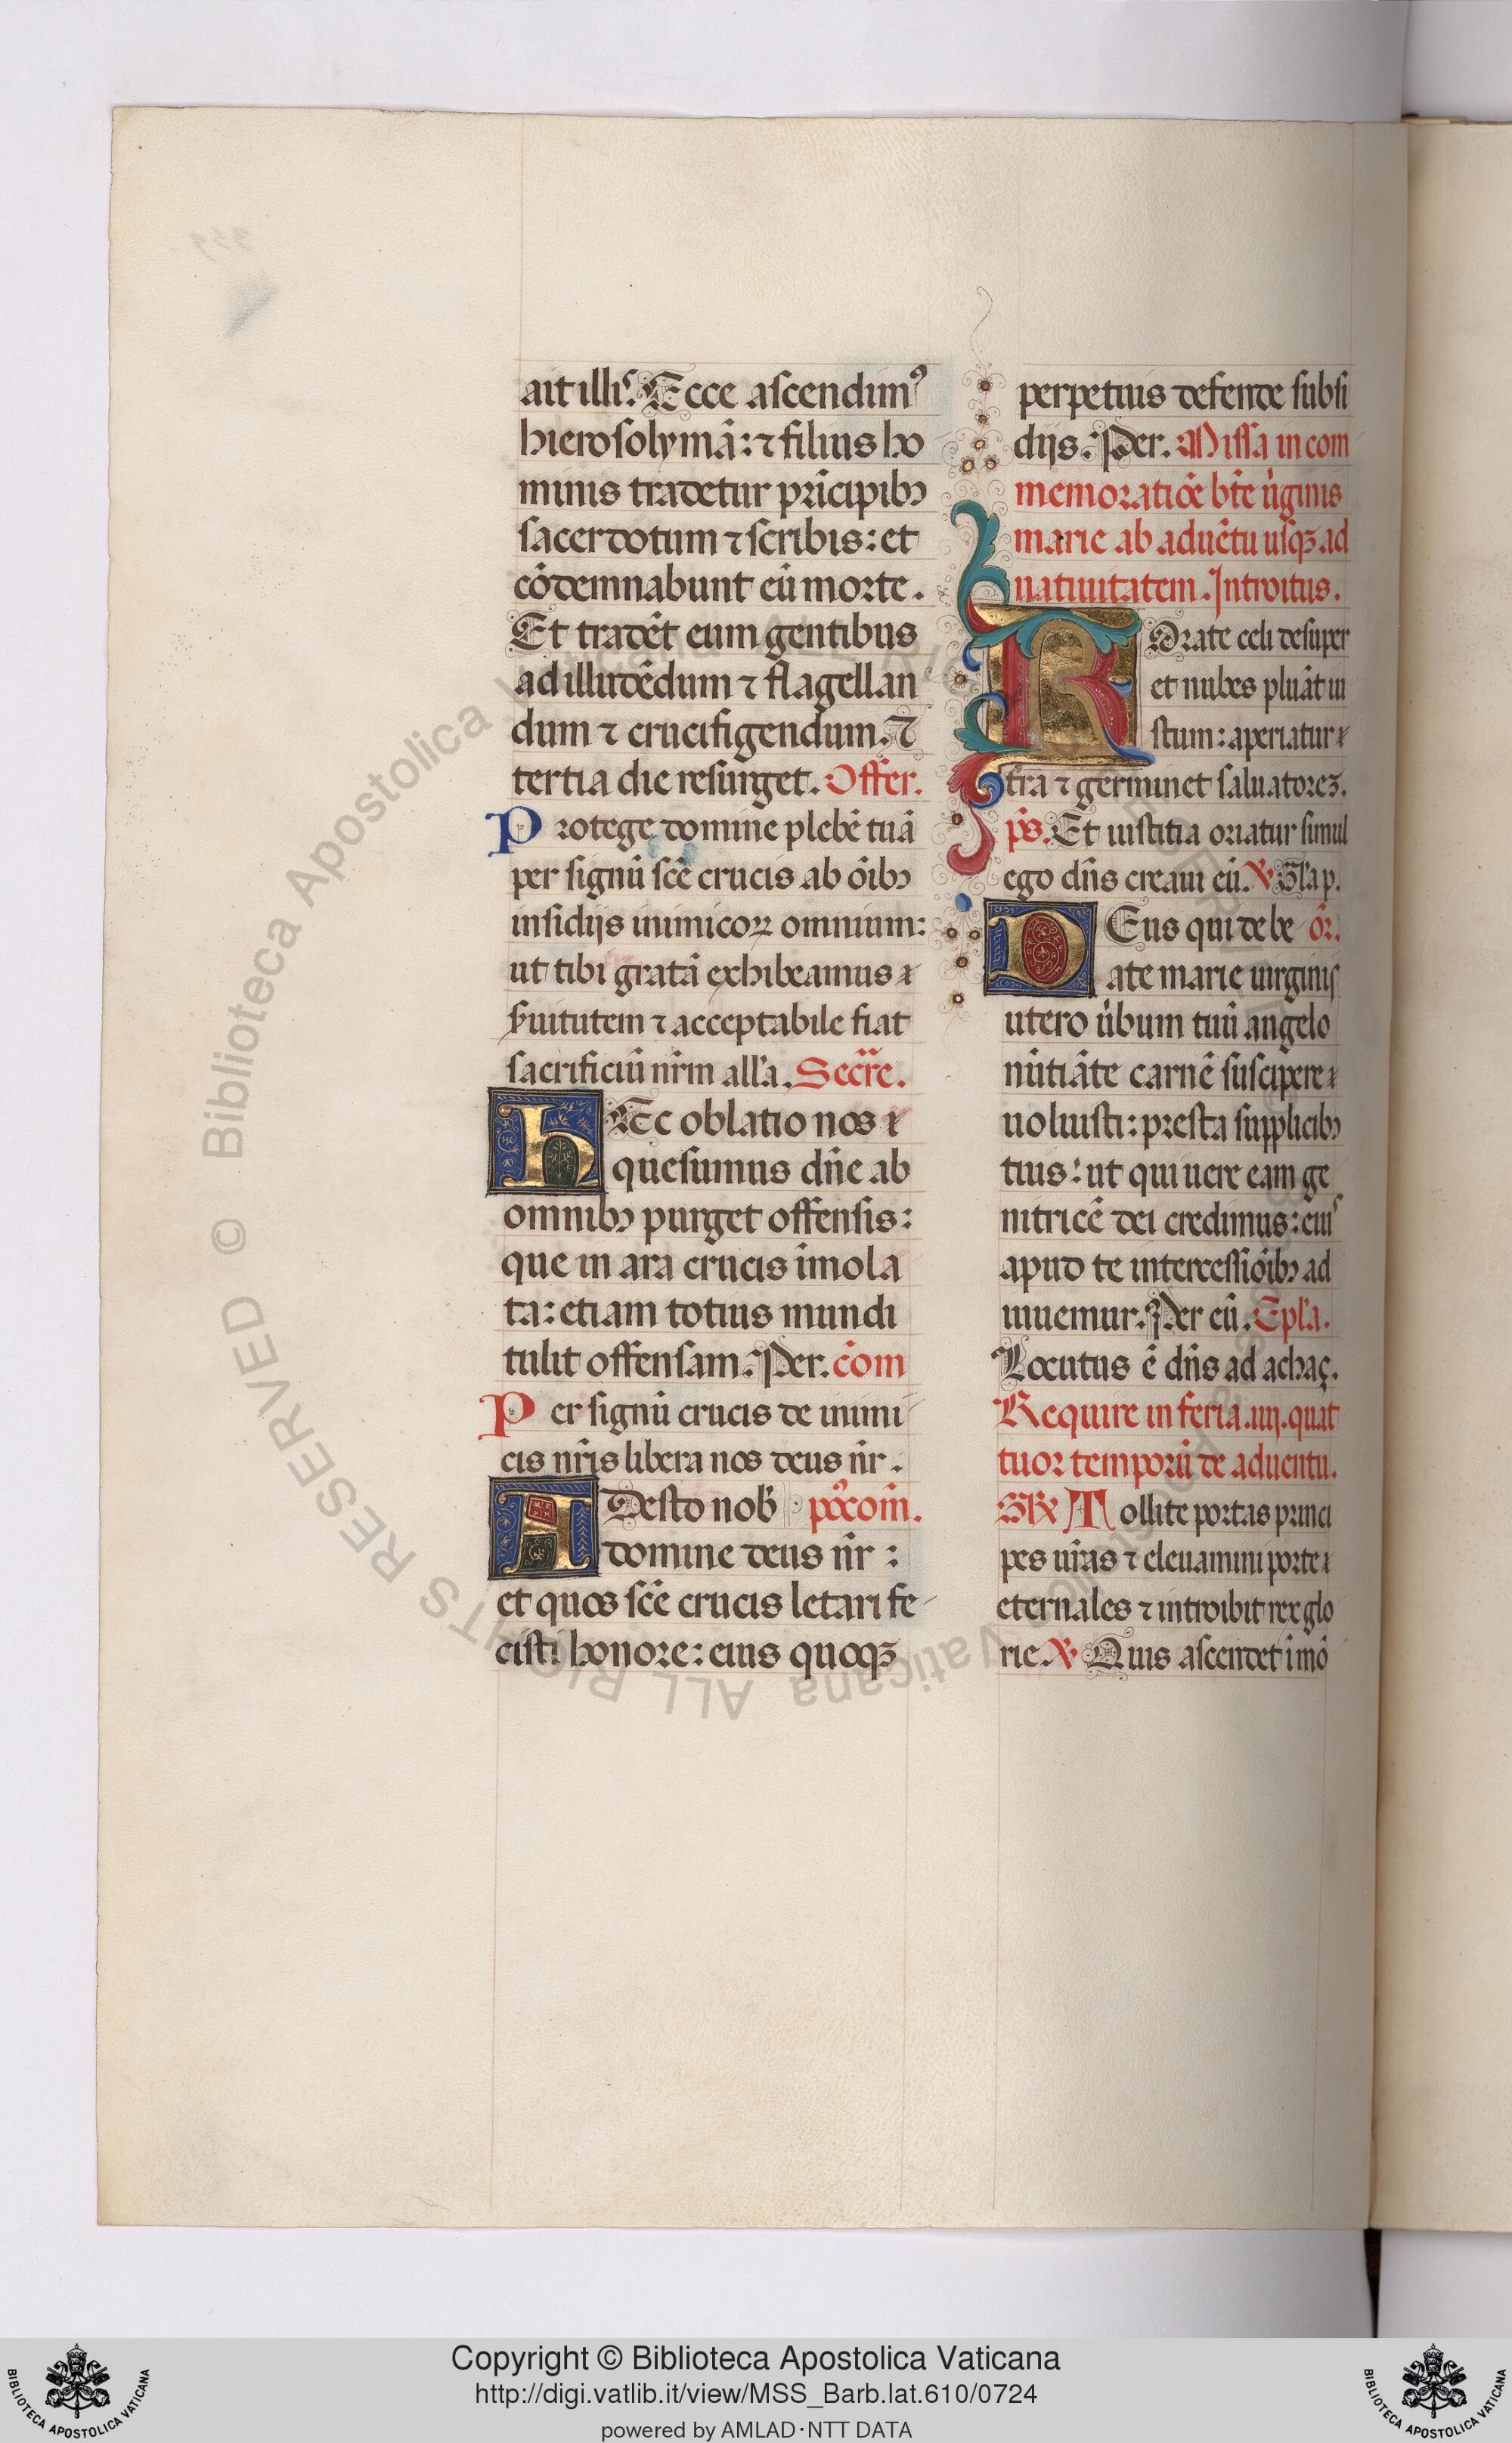 ait illis. Ecce ascendimꝰ
hierosolymā: ⁊ filius ho
minis tradetur prīcipibꝫ
sacerdotum ⁊ scribis: et
cōdemnabunt eū morte.
Et tradēt eum gentibus
ad illudēdum ⁊ flagellan
dum ⁊ crucifigendum. ⁊
tertia die resurget. Offer.
Protege domine plebē tuā
per signū scē crucis ab oībꝫ
insidijs inimicoꝝ omnium:
ut tibi gratā exhibeamus
ſ̄uitutem ⁊ acceptabile fiat
sacrificiū nr̄m all'a. Secre.
HEc oblatio nos
quesumus dn̄e ab
omnibꝫ purget offensis:
que in ara crucis īmola
ta: etiam totius mundi
tulit offensam. Per. cōm
Per signū crucis de inimi
cis nr̄is libera nos deus nr̄.
ADesto nob̄ pꝰcom̄.
domine deus nr̄:
et quos scē crucis letari fe
cisti honore: eius quoqꝫ
perpetuis defende subsi
dijs. Per. Missa in com
memoratiōe btē ūginis
marie ab aduētu usqꝫ ad
natiuitatem. Introitus.
ROrate celi desuper
et nubes pluāt iu
stum: aperiatur
tr̄a ⁊ germinet saluatoreꝫ.
ps̄. Et iustitia oriatur simul
ego dn̄s creaui eū. ℣ Gl'a p.
DEus qui de be or̄.
ate marie uirginis
utero ūbum tuū angelo
nūtiāte carnē suscipere
uoluisti: presta supplicibꝫ
tuis: ut qui uere eam ge
nitricē dei credimus: eiuˢ
apud te intercessiōibꝫ ad
iuuemur. Per eū. Epl'a.
Locutus ē dn̄s ad achaç.
Require in feria .iiij. quat
tuor temporū de aduentu.
GR̄ Tollite portas princi
pes ur̄as ⁊ eleuamini porte
eternales ⁊ introibit rex glo
rie. ℣ Quis ascendet ī mō
© Biblioteca Apostolica Vaticana ALL RIGHTS RESERVED
Copyright © Biblioteca Apostolica Vaticana
http://digi.vatlib.it/view/MSS_Barb.lat.610/0724
powered by AMLAD·NTT DATA
BIBLIOTECA APOSTOLICA VATICANA
BIBLIOTECA APOSTOLICA VATICANA